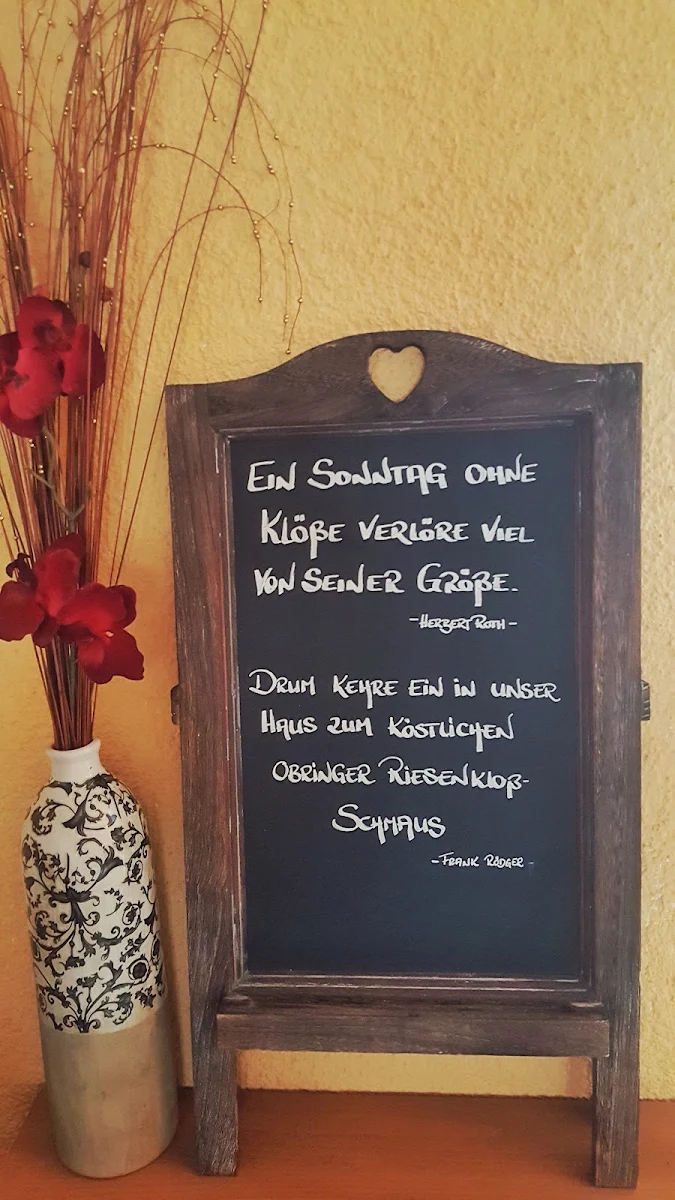 Ein Sonntag ohne
Klöße verlöre viel
von seiner Größe.
-Herbert Roth-
Drum kehre ein in unser
Haus zum köstlichen
Obringer Riesenkloß-
Schmaus
-Frank Rödger-